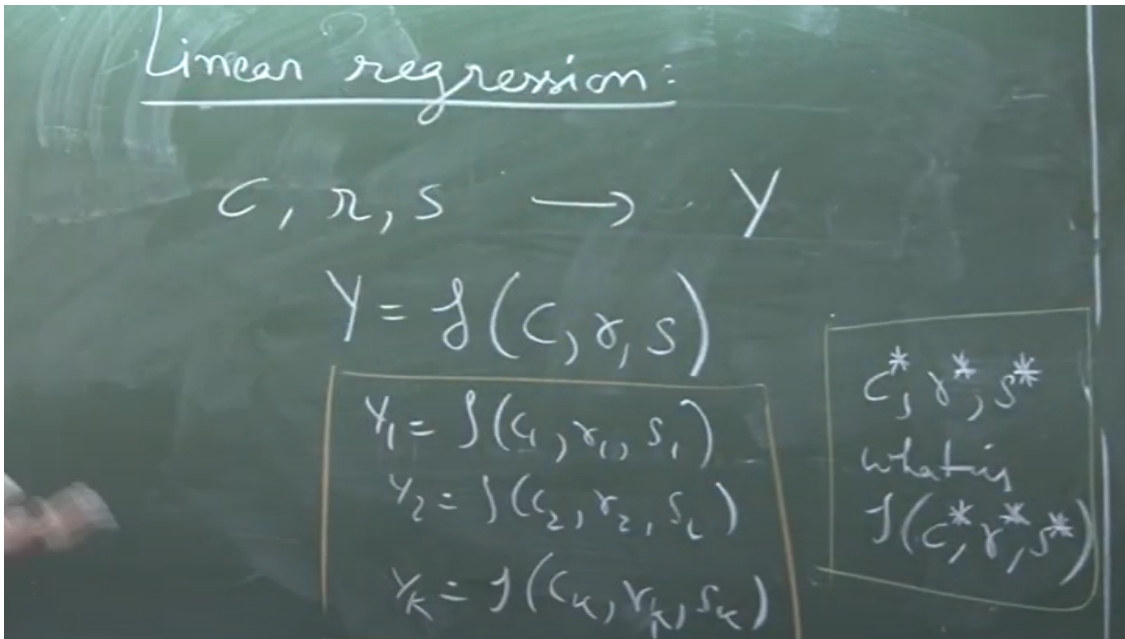 Linear regression:
C, r, s → Y
Y = f(C, r, s)
Y₁ = f(C₁, r₁, s₁)
Y₂ = f(C₂, r₂, s₂)
Yₖ = f(Cₖ, rₖ, sₖ)
C*, r*, s*
what is
f(C*, r*, s*)